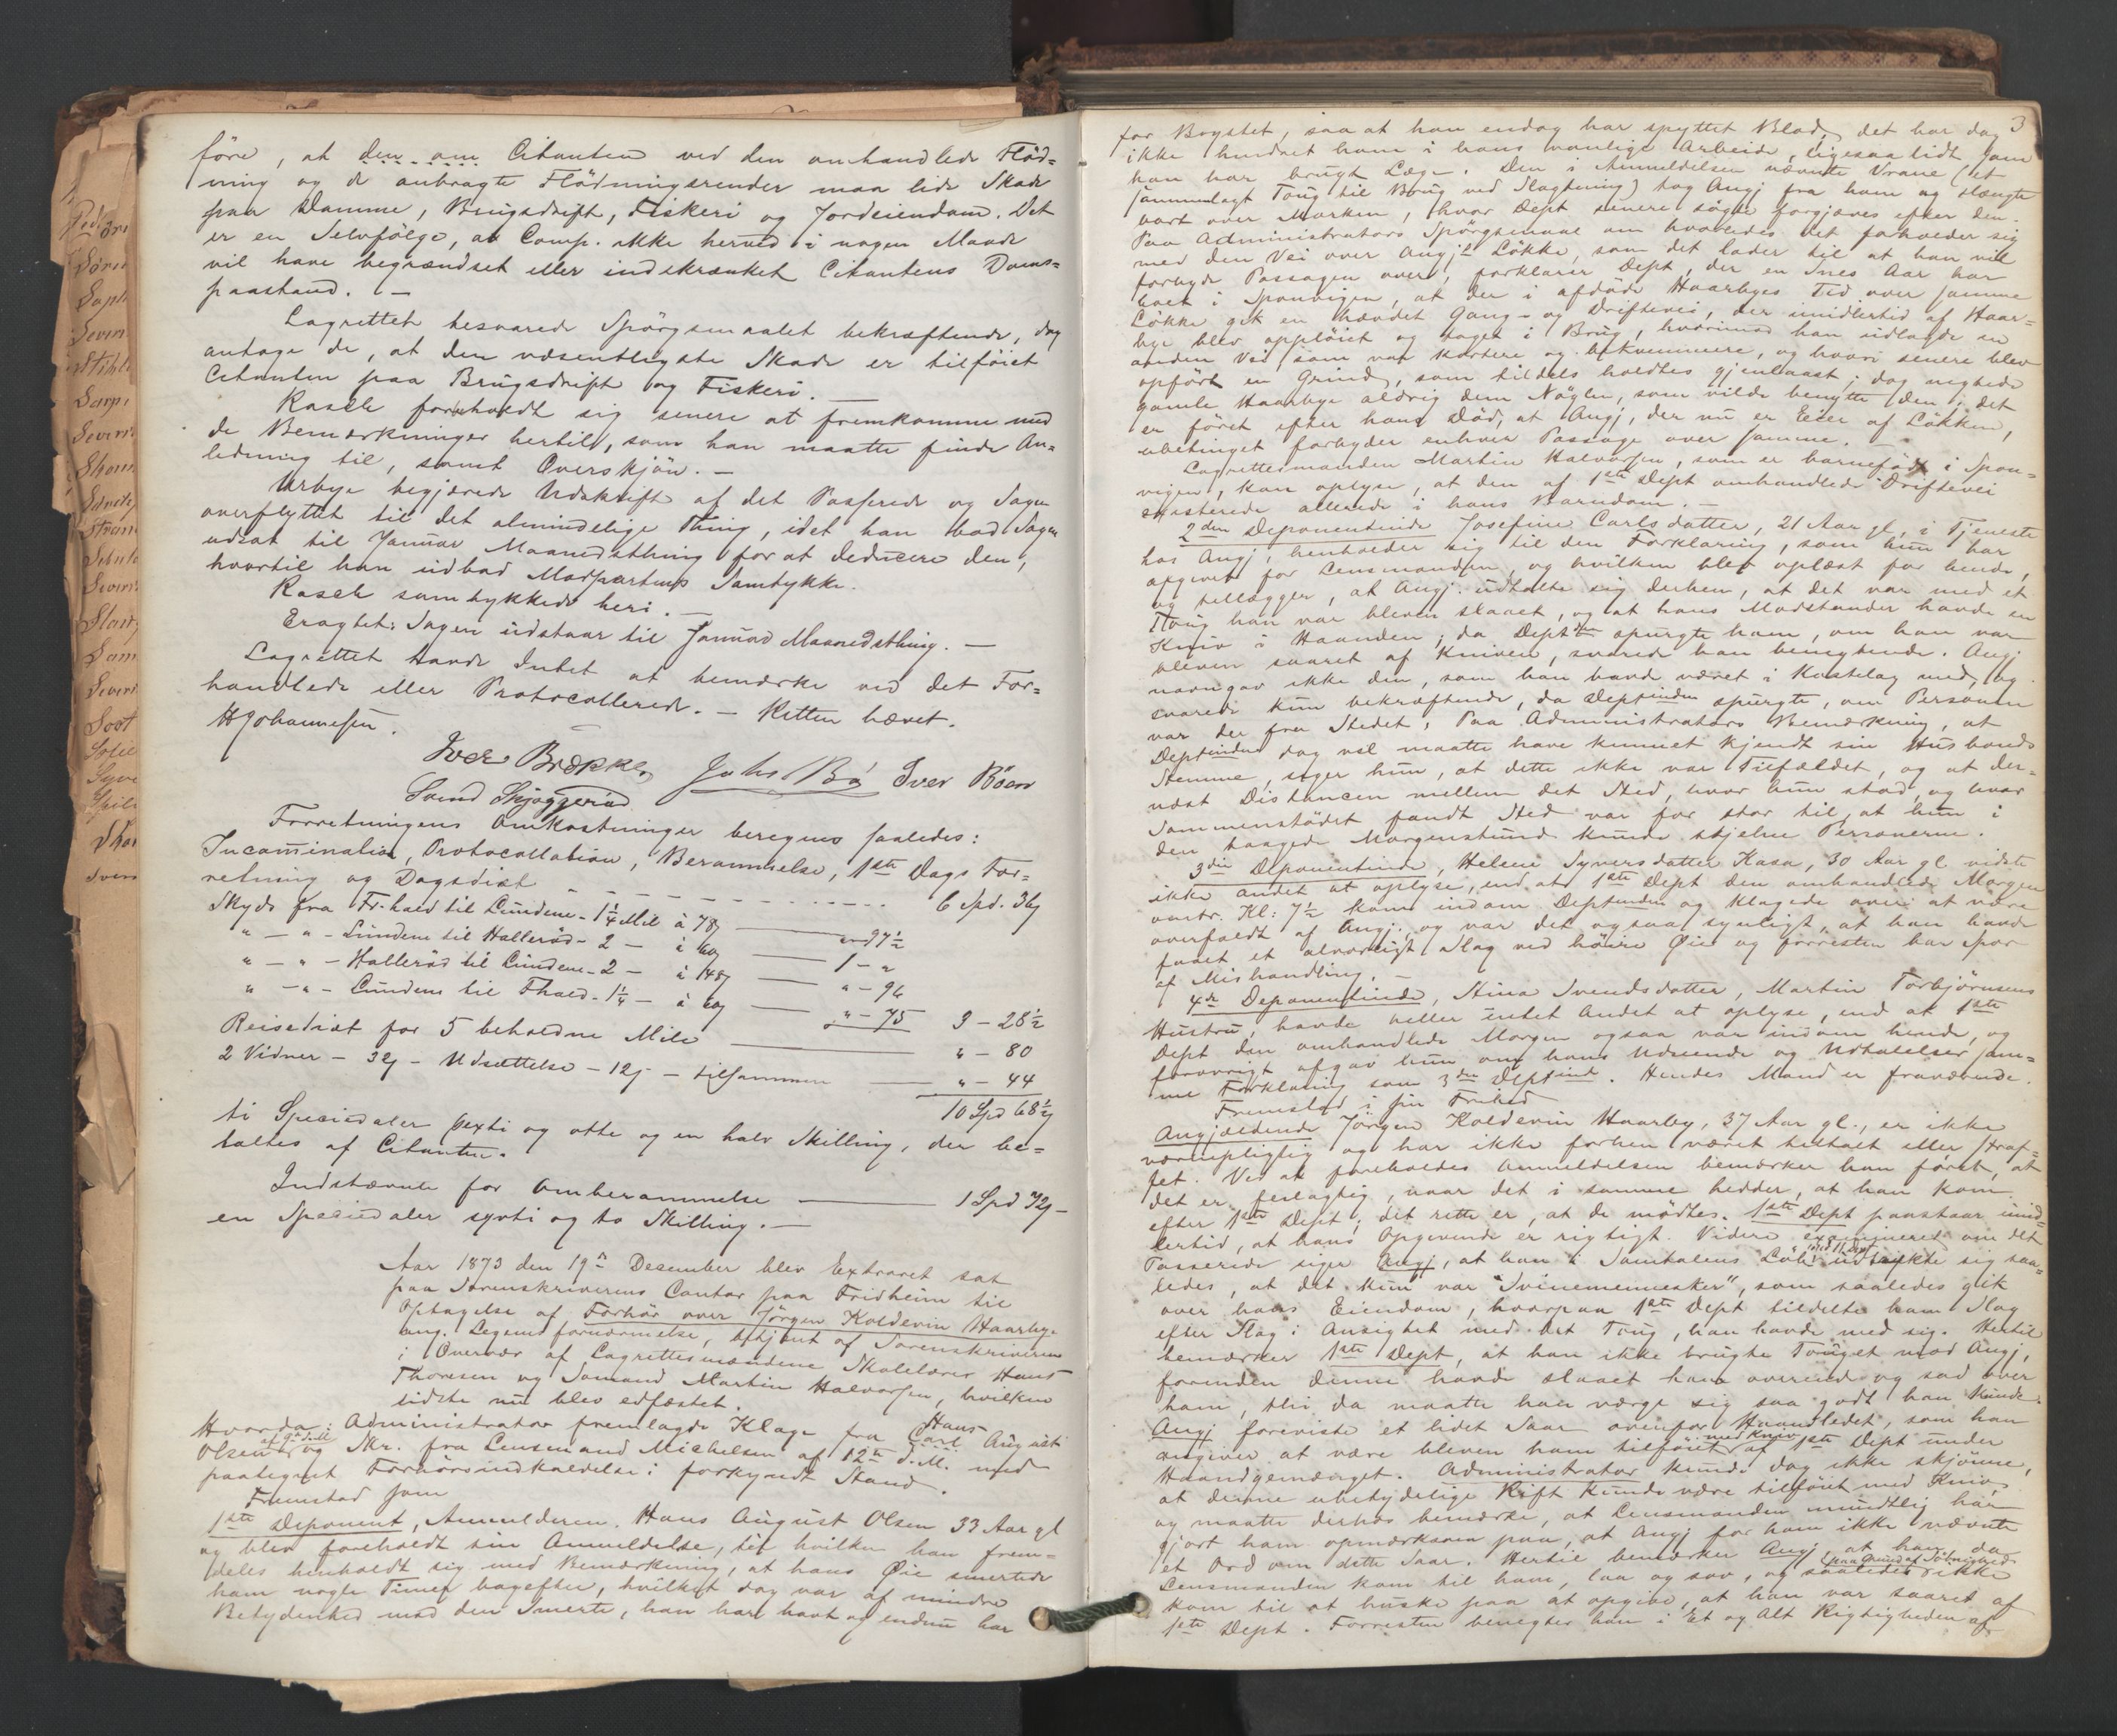 føre, at den om Citanten ved den omhandlede Flød=
ning og de anbragte Flødningsrender maa lide Skade
paa Damme, Brugsdrift, Fiskeri og Jordeiendom. Det
er en Selvfølge, at Comp. ikke herved i nogen Maade
vil have begrændset eller indskrænket Citantens Doms=
paastand. —
Lagrettet besvarede Spørgsmaalet bekræftende, dog
antage de, at den væsentligste Skade er tilføiet
Citanten paa Brugsdrift og Fiskeri. —
Rasch forbeholdt sig senere at fremkomme med
de Bemærkninger hertil, som han maatte finde An=
ledning til, samt Overskjøn. —
Urbye begjærede Udskrift af det Passerede og Sagen
overflyttet til det almindelige Thing, idet han bad Sagen
udsat til Januar Maanedsthing for at deducere den,
hvortil han udbad Modpartens Samtykke.
Rasch samtykkede heri. —
Eragtet: Sagen udstaar til Januar Maanedsthing. —
Lagrettet havde Intet at bemærke ved det For=
handlede eller Protocollerede. — Retten hævet.
H Johannesen.
Iver Brække Johs Bø Iver Bøen
Svend Skjøggerød
Forretningens Omkostninger beregnes saaledes:
Incamination, Protocollation, Berammelse, 1ste Dags For=
retning og Dagsdiæt — — — 6 Spd. 36ẞ
Skyds fra Fr.hald til Lundene - 1 1/4 Mil à 78ẞ — 97 1/2
" — " - Lundene til Hallerød - 2 — à 60ẞ — 1 - "
" — " - Hallerød til Lundene - 2 — à 48ẞ — " - 96
" — " - Lundene til Fhald - 1 1/4 — à 60ẞ — " - 75 3 - 28 1/2
Reisediæt for 5 beholdne Mile — " - 80
2 Vidner - 32ẞ - Udsættelse - 12ẞ - tilsammen — " - 44
10 Spd 68 1/2ẞ
ti Speciedaler sexti og otte og en halv Skilling, der be=
taltes af Citanten.
Indstævnte for Omberammelse — 1 Spd 72ẞ -
en Speciedaler sytti og to Skilling. —
Aar 1873 den 19de Desember blev Extraret sat
paa Sorenskriverens Contor paa Fridheim til
Optagelse af Forhør over Jørgen Koldevin Haarbye
ang. Legemsfornærmelse, betjent af Sorenskriveren
i Overvær af Lagrettesmændene Skolelærer Hans
Thoresen og Sømand Martin Halvorsen, hvilken
sidste nu blev edfæstet.
Hvorda: Administrator fremlagde Klage fra Carl Hans August
Olsen af 9de d.M. og Skr. fra Lensmand Michelsen af 12te d.M. med
paategnet Forhørsindkaldelse i forkyndt Stand.
Fremstod som
1ste Deponent, Anmelderen Hans August Olsen 33 Aar gl
og blev foreholdt sin Anmeldelse, til hvilken han frem=
deles henholdt sig med Bemærkning, at hans Øie smertede
ham nogle Timer bagefter, hvilket dog var af mindre
Betydenhed mod den Smerte, han har havt og endnu har
3
for Brystet, saa at han endog har spyttet Blod, det har dog
ikke hindret ham i hans vanlige Arbeide, ligesaa lidt som
han har brugt Læge. Den i Anmeldelsen nævnte Vrane (et
sammenlagt Toug til Brug ved Slagtning) tog Angj fra ham og slængte
bort over Marken, hvor Dept senere søgte forgjæves efter den.
Paa Administrators Spørgsmaal om hvorledes det forholder sig
med den Vei over Angj's Løkke, som det lader til at han vil
forbyde Passagen over, forklarer Dept, der en Snes Aar har
boet i Sponvigen, at der i afdøde Haarbyes Tid over samme
Løkke gik en hævdet Gang- og Driftevei, der imidlertid af Haar=
bye blev oppløiet og taget i Brug, hvorimod han udlagde en
anden Vei som var kortere og bekvemmere, og hvori senere blev
opført en Grind, som tildels holdtes gjenlaast; dog negtede
gamle Haarbye aldrig dem Nøglen, som vilde benytte den; det
er først efter hans Død, at Angj, der nu er Eier af Løkken,
ubetinget forbyder enhver Passage over samme. —
Lagrettesmanden Martin Halvorsen, som er barnefødt i Spon=
vigen, kan oplyse, at den af 1ste Dept omhandlede Driftevei
existerede allerede i hans Barndom. —
2den Deponentinde Josefine Carlsdatter, 21 Aar gl, i Tjeneste
hos Angj, henholder sig til den Forklaring, som hun har
afgivet for Lensmanden, og hvilken blev oplæst for hende,
og tillægger, at Angj. udtalte sig derhen, at det var med et
Toug han var bleven slaaet, og at hans Modstander havde en
Kniv i Haanden; da Deptden spurgte ham, om han var
bleven saaret af Kniven, svarede han benegtende. Angj
navngav ikke den, som han havde været i Kastelag med, og
svarede kun bekræftende, da Deptinden spurgte, om Personen
var der fra Stedet. Paa Administrators Bemærkning, at
Deptinden dog vel maatte have kunnet kjendt sin Husbonds
Stemme, siger hun, at dette ikke var Tilfældet, og at der=
næst Distancen mellem det Sted, hvor hun stod, og hvor
Sammenstødet fandt Sted var for stor til, at hun i
den taagede Morgenstund kunde skjelne Personerne.
3die Deponentinde, Helene Syversdatter Kasa, 30 Aar gl vidste
ikke andet at oplyse, end at 1ste Dept den omhandlede Morgen
omtr. Kl: 7 1/2 kom indom Deptinden og klagede over at være
overfaldt af Angj., og var det ogsaa synligt, at han havde
faaet et alvorligt Slag ved høire Øie og forresten bar Spor
af Mishandling. —
4de Deponentinde, Stina Svendsdatter, Martin Torbjørnsens
Hustru, havde heller intet Andet at oplyse, end at 1ste
Dept den omhandlede Morgen ogsaa var indom hende, og
forøvrigt afgav hun om hans Udseende og Udtalelser sam=
me Forklaring som 3die Deptinde. Hendes Mand er fraværende.
Fremstod i sin Frihed
Angjældende Jørgen Koldevin Haarby, 37 Aar gl., er ikke
værnepligtig og har ikke forhen været tiltalt eller straf=
fet. Ved at foreholdes Anmeldelsen bemærker han først, at
det er feilagtig, naar det i samme hedder, at han kom
efter 1ste Dept; det rette er, at de mødtes. 1ste Dept paastaar imid=
lertid, at hans Opgivende er rigtigt. Videre examineret om det
Passerede siger Angj, at han i Samtalens Løb med 1 Dept udtrykte sig saa=
ledes, at det kun var "Svinemennesker", som saaledes gik
over hans Eiendom, hvorpaa 1ste Dept tildelte ham Slag
efter Slag i Ansigtet med det Toug, han havde med sig. Hertil
bemærker 1ste Dept, at han ikke brugte Touget mod Angj,
forinden denne havde slaaet ham overende og sad over
ham, thi da maatte han værge sig saa godt han kunde.
Angj foreviste et lidet Saar ovenfor Haandledet, som han
angiver at være bleven ham tilføiet med Kniv af 1ste Dept under
Haandgemænget. Administrator kunde dog ikke skjønne,
at denne ubetydelige Rift kunde være tilføiet med Kniv,
og maatte derhos bemærke, at Lensmanden mundtlig har
gjort ham opmærksom paa, at Angj for ham ikke nævnte
et Ord om dette Saar. Hertil bemærker Angj, at han, da
Lensmanden kom til ham, laa og sov, og saaledes paa Grund af Søvnighed ikke
kom til at huske paa at opgive, at han var saaret af
1ste Dept. Forresten benegter han i Et og Alt Rigtigheden af